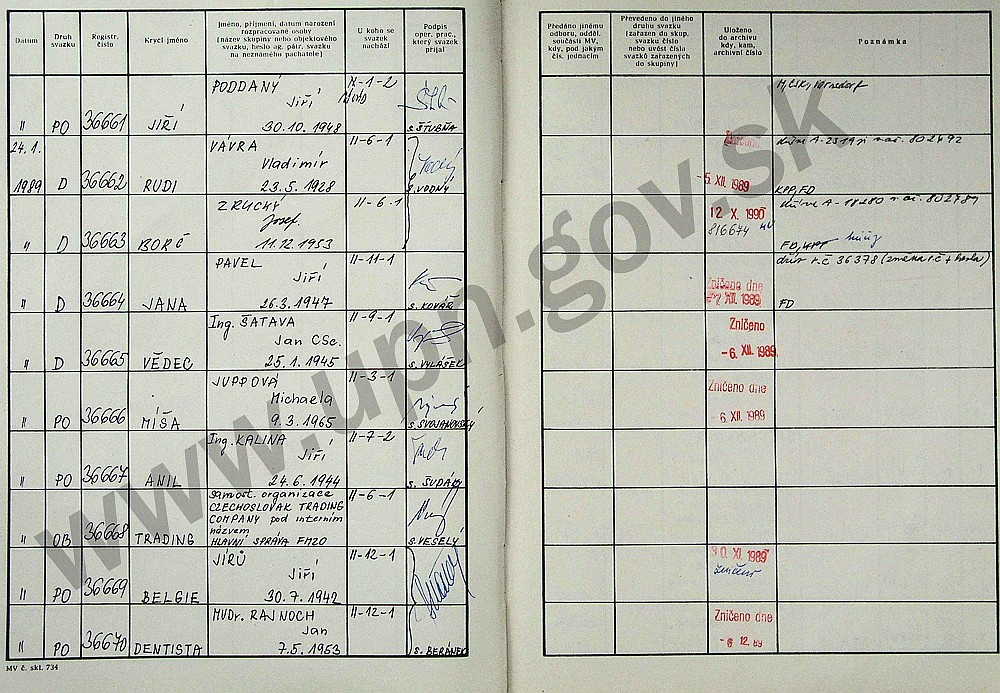 Datum
Druh svazku
Registr. číslo
Krycí jméno
Jméno, příjmení, datum narození
rozpracované osoby
(název skupiny nebo objektového
svazku, heslo ag. pátr. svazku
na neznámého pachatele)
U koho se
svazek
nachází
Podpis
oper. prac.,
který svazek
přijal
Předáno jinému
odboru, odděl.
součásti MV,
kdy, pod jakým
čís. jednacím
Převedeno do jiného
druhu svazku
(zařazen do skup.
svazku číslo
nebo uvést čísla
svazků zařazených
do skupiny)
Uloženo
do archivu
kdy, kam,
archivní číslo
Poznámka
PODDANÝ
Jiří
" PO 36661 JIŘÍ 30.10.1948 s. ŠTUBŇA
24.1. VÁVRA II-6-1
Vladimír
1989 D 36662 RUDI 23.5.1928 s. VODNÝ -5. XII. 1989 KPP, FD
ZRUCKÝ II-6-1
Josef 12 X. 1990
816674
" D 36663 BORČ 11.12.1953
PAVEL II-11-1
Jiří Zničeno dne
" D 36664 JANA 26.3.1947 s. KOVÁŘ XII. 1989 FD
Ing. ŠATAVA II-9-1 Zničeno
Jan CSc.
" D 36665 VĚDEC 25.1.1945 s. VYLÁŠEK -6. XII. 1989
JUPPOVÁ II-3-1 Zničeno dne
Michaela
" PO 36666 MÍŠA 9.3.1965 s. SVOJANOVSKÝ -6. XII. 1989
Ing. KALINA II-7-2
Jiří
" PO 36667 ANIL 24.6.1944
samost. organizace II-6-1
CZECHOSLOVAK TRADING
COMPANY pod interním
názvem
" OB 36668 TRADING HLAVNÍ SPRÁVA FMZO s. VESELÝ
JÍRŮ II-12-1 30. XI. 1989
Jiří
" PO 36669 BELGIE 30.7.1942
MUDr. RAJNOCH II-12-1 Zničeno dne
Jan
" PO 36670 DENTISTA 7.5.1953 s. BERÁNEK 12. 89
MV č. skl. 734
www.upn.gov.sk